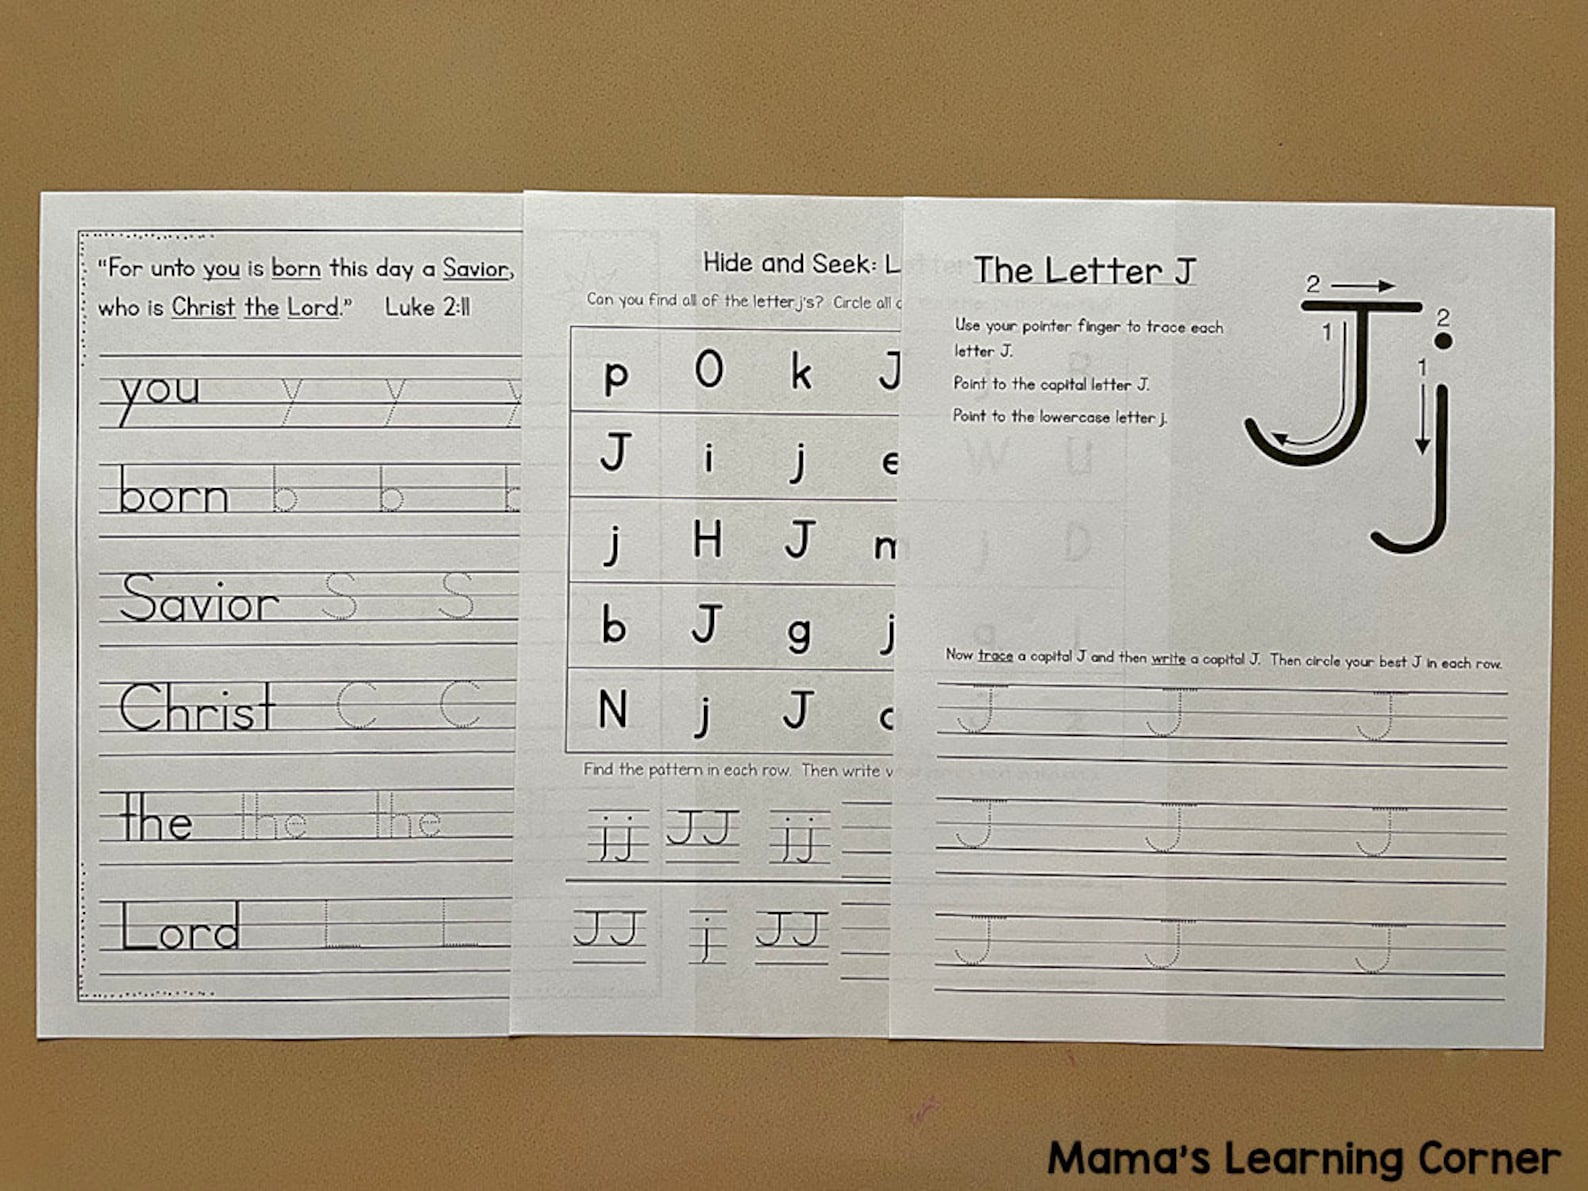 "For unto you is born this day a Savior,
who is Christ the Lord." Luke 2:11
you y y y
born b b b
Savior S S
Christ C C
the the the
Lord L L
Hide and Seek: L
Can you find all of the letter j's? Circle all
p O k J
J i j e
j H J m
b J g j
N j J
Find the pattern in each row. Then write
jj JJ jj
JJ j JJ
The Letter J
Use your pointer finger to trace each
letter J.
Point to the capital letter J.
Point to the lowercase letter j.
2
1
J
2
1
j
Now trace a capital J and then write a capital J. Then circle your best J in each row.
J J J
J J J
J J J
Mama's Learning Corner